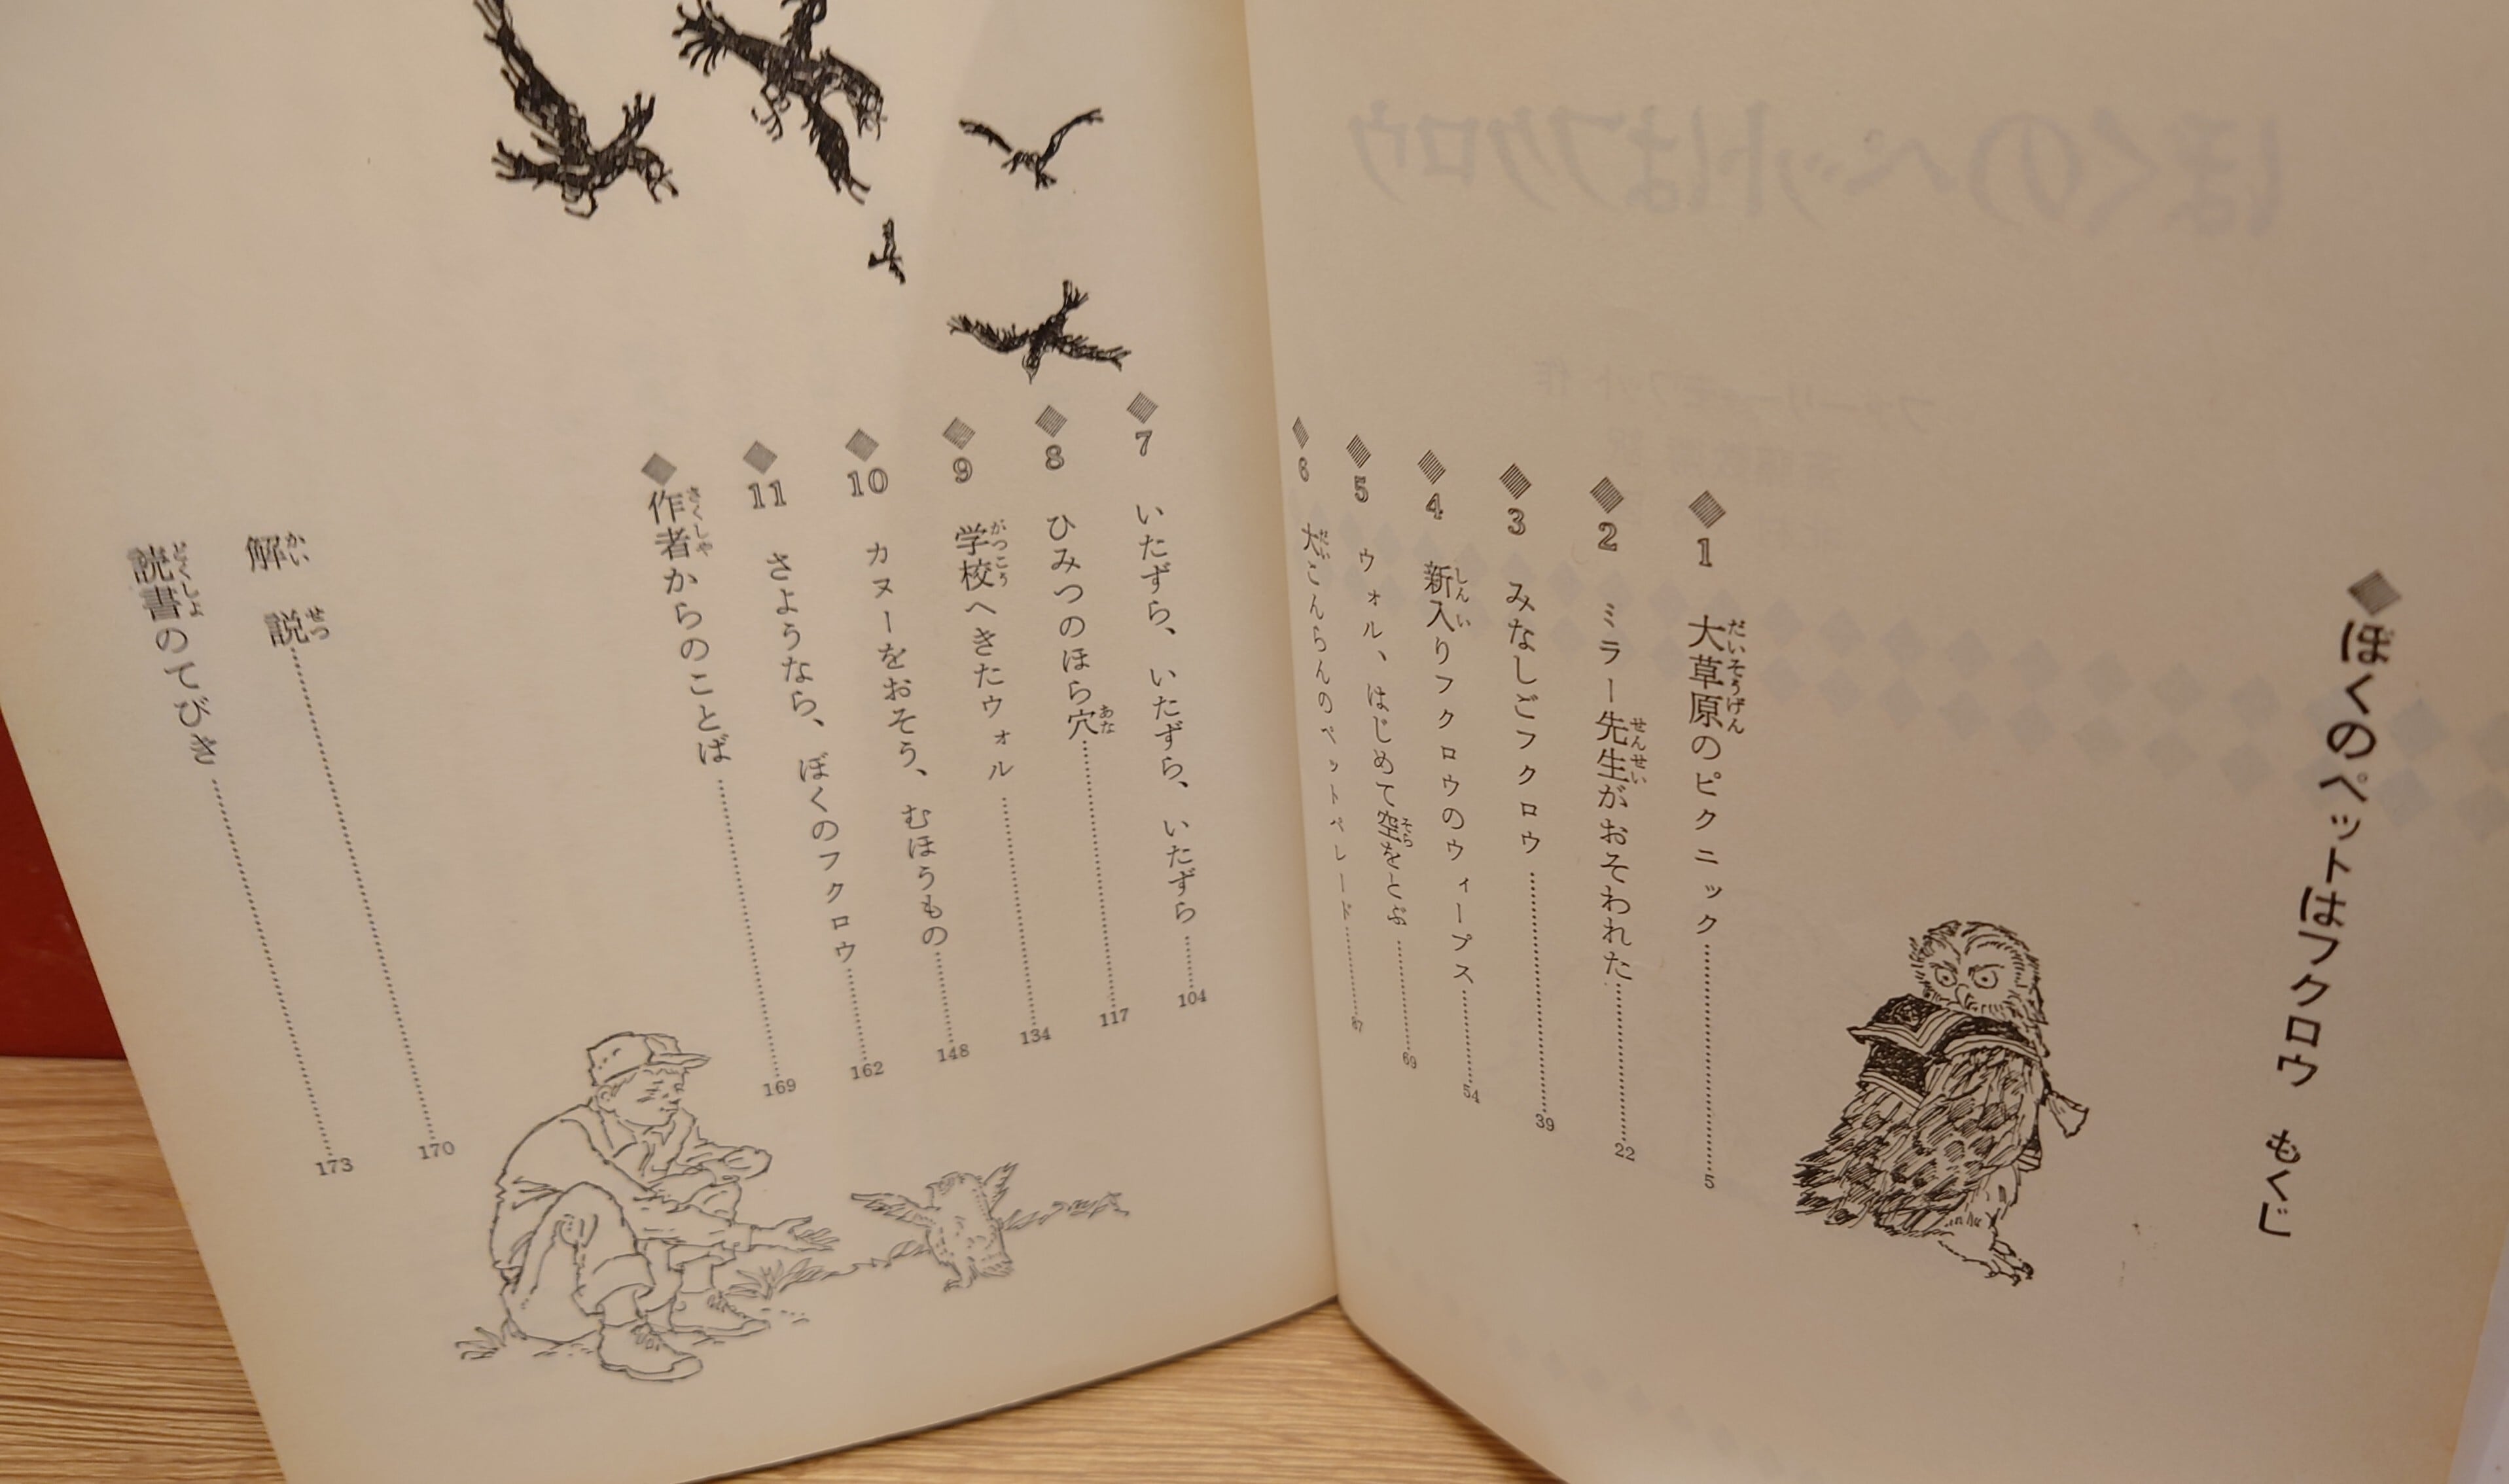 ぼくのペットはフクロウ もくじ
1 大草原のピクニック 5
2 ミラー先生がおそわれた 22
3 みなしごフクロウ 39
4 新入りフクロウのウィープス 54
5 ウォル、はじめて空をとぶ 69
6 大こんらんのペットパレード
7 いたずら、いたずら、いたずら 104
8 ひみつのほら穴 117
9 学校へきたウォル 134
10 カヌーをおそう、むほうもの 148
11 さようなら、ぼくのフクロウ 162
作者からのことば 169
解説 170
読書のてびき 173